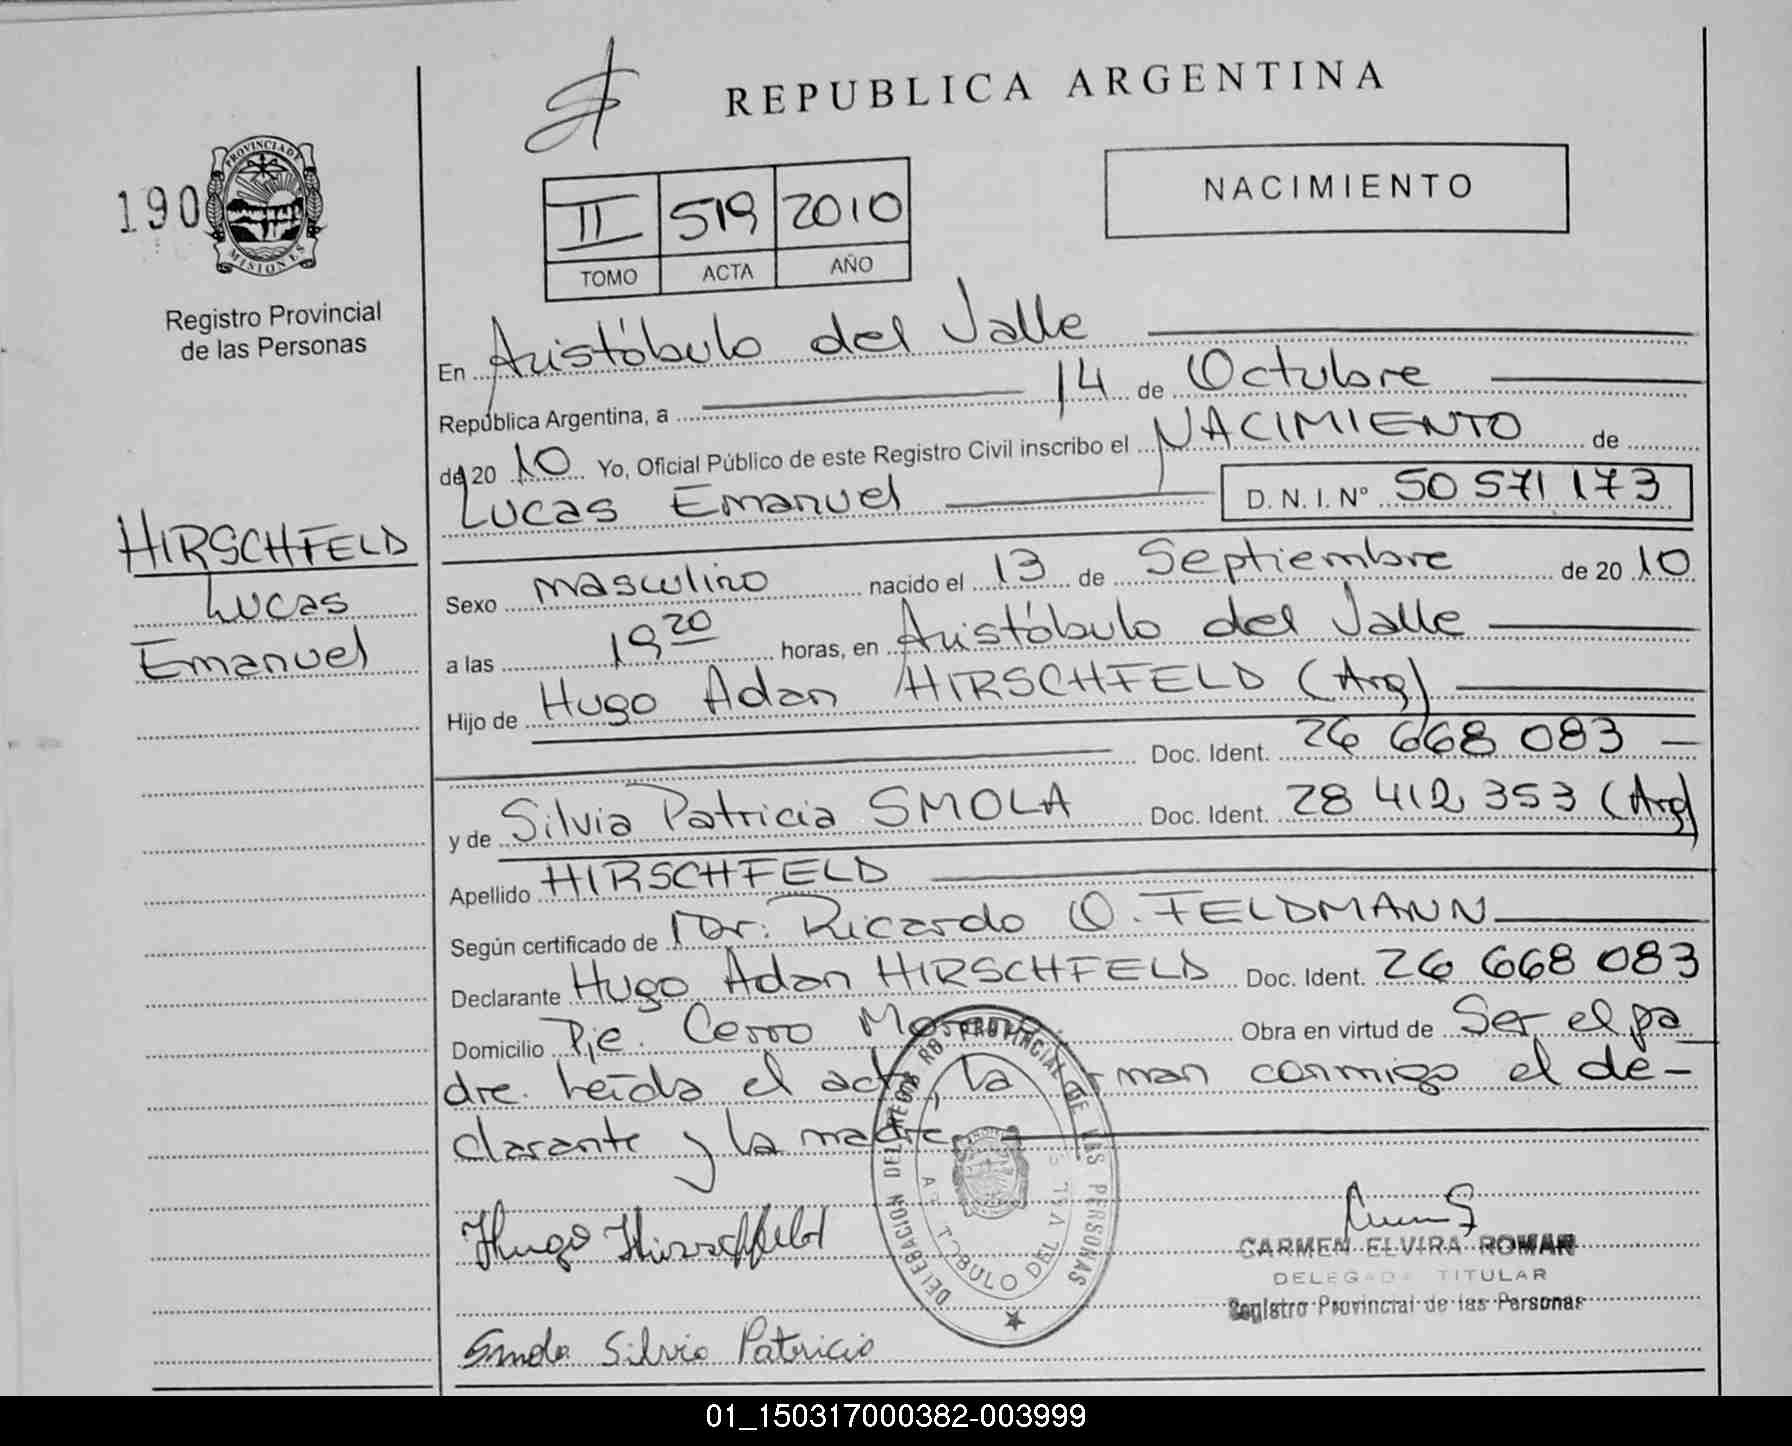 REPUBLICA ARGENTINA
NACIMIENTO
190
PROVINCIA DE
MISIONES
Registro Provincial
de las Personas
II 519 2010
TOMO ACTA AÑO
HIRSCHFELD
Lucas
Emanuel
En Aristóbulo del Valle
República Argentina, a 14 de Octubre
de 20 10 Yo, Oficial Público de este Registro Civil inscribo el NACIMIENTO de
Lucas Emanuel D. N. I. Nº 50 571 173
Sexo masculino nacido el 13 de Septiembre de 20 10
a las 19 20 horas, en Aristóbulo del Valle
Hijo de Hugo Adan HIRSCHFELD (Arg)
Doc. Ident. 26 668 083
y de Silvia Patricia SMOLA Doc. Ident. 28 412 353 (Arg)
Apellido HIRSCHFELD
Según certificado de Dr. Ricardo O. FELDMANN
Declarante Hugo Adan HIRSCHFELD Doc. Ident. 26 668 083
Domicilio Pje. Cerro Obra en virtud de Ser el pa
dre. Leída el acta, la man conmigo el de-
clarante y la madre
DELEGACION DEL REGISTRO PROVINCIAL DE LAS PERSONAS
TOBULO DEL
Hugo Hirschfeld
CARMEN ELVIRA ROMAN
DELEGADA TITULAR
Registro Provincial de las Personas
Smola Silvia Patricia
01_150317000382-003999